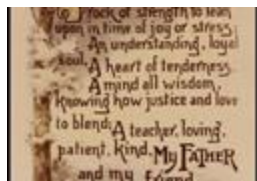 rock of strength to lean
upon in time of joy or stress,
An understanding, loyal
soul, A heart of tenderness,
A mind all wisdom,
knowing how justice and love
to blend; A teacher, loving,
patient, kind, My FATHER
and my friend